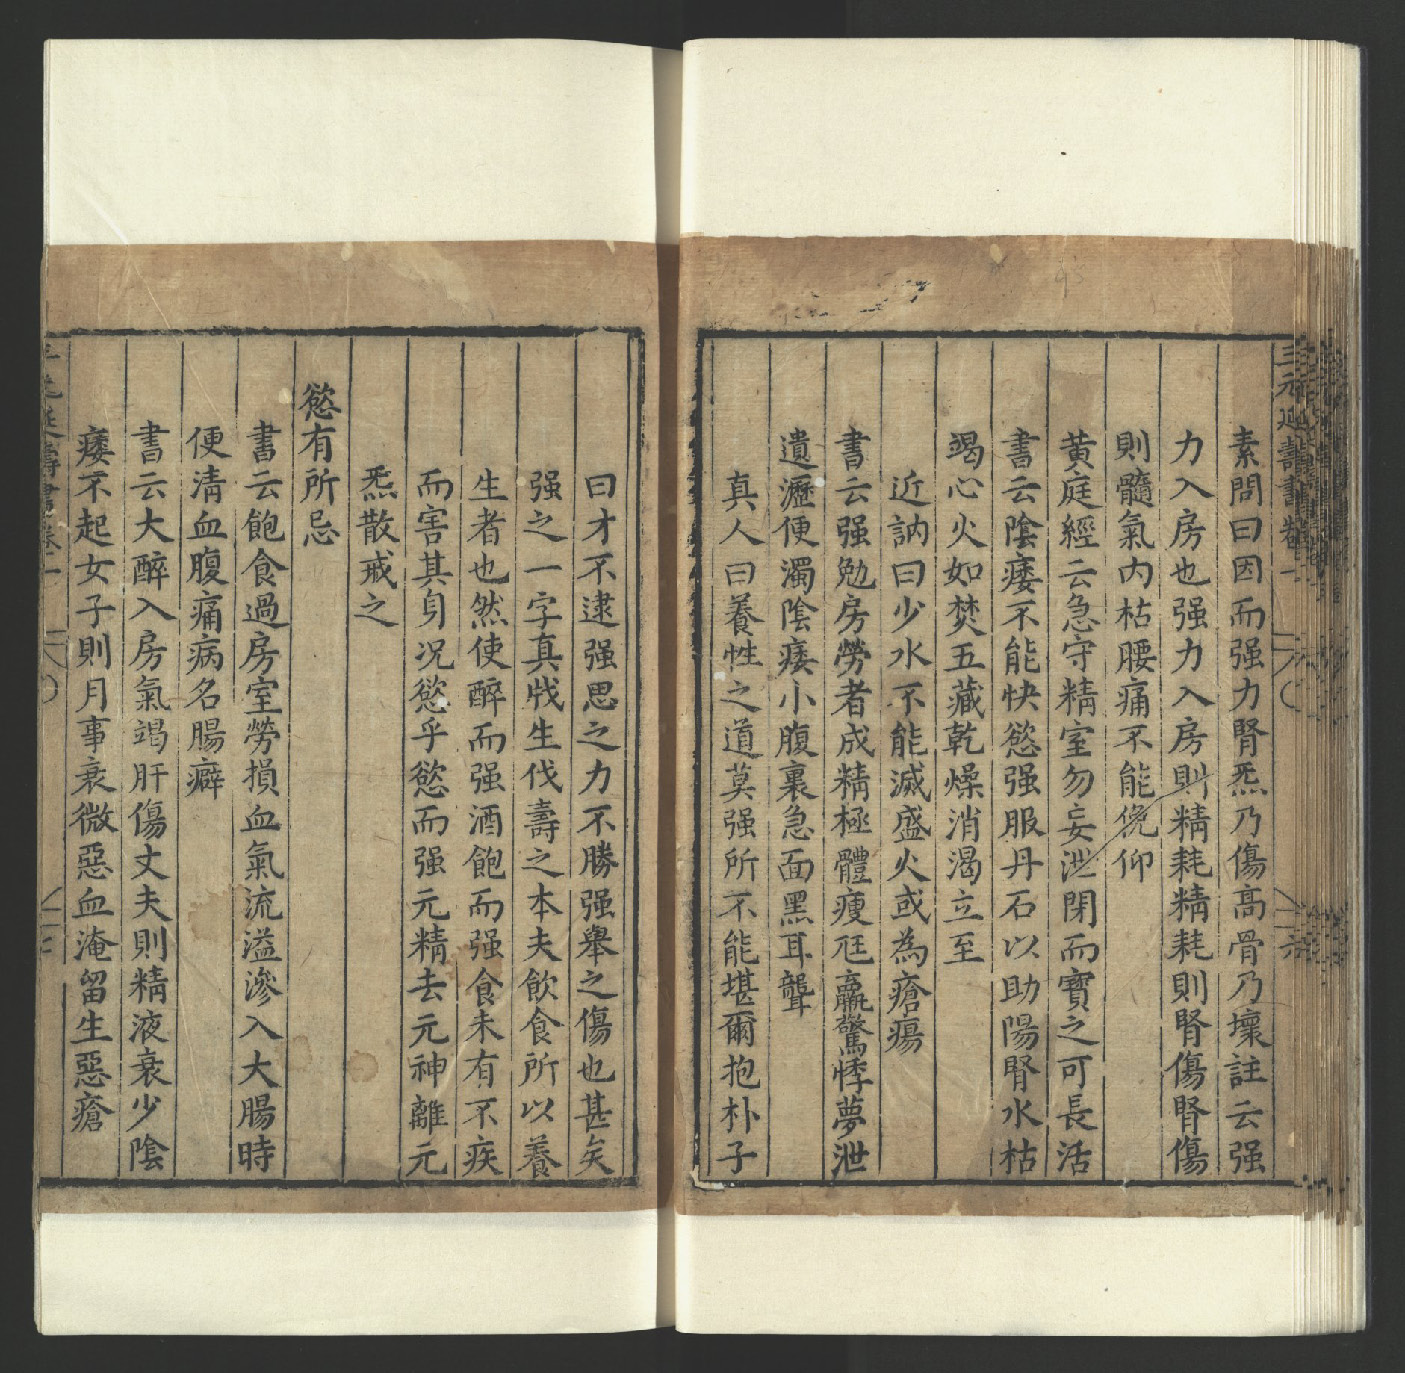 素問曰因而强力腎炁乃傷高骨乃壞註云强
力入房也强力入房則精耗精耗則腎傷腎傷
則髓氣内枯腰痛不能俛仰
黄庭經云急守精室勿妄泄閉而寳之可長活
書云陰痿不能快慾强服丹石以助陽腎水枯
竭心火如焚五藏乾燥消渴立至
近訥曰少水不能滅盛火或為瘡瘍
書云强勉房勞者成精極體瘦尫羸驚悸夢泄
遺瀝便濁陰痿小腹裏急面黑耳聾
真人曰養性之道莫强所不能堪爾抱朴子
曰才不逮强思之力不勝强舉之傷也甚矣
强之一字真戕生伐壽之本夫飲食所以養
生者也然使醉而强酒飽而强食未有不疾
而害其身况慾乎慾而强元精去元神離元
炁散戒之
慾有所忌
書云飽食過房室勞損血氣流溢滲入大腸時
便清血腹痛病名腸癖
書云大醉入房氣竭肝傷丈夫則精液衰少陰
痿不起女子則月事衰微惡血淹留生惡瘡